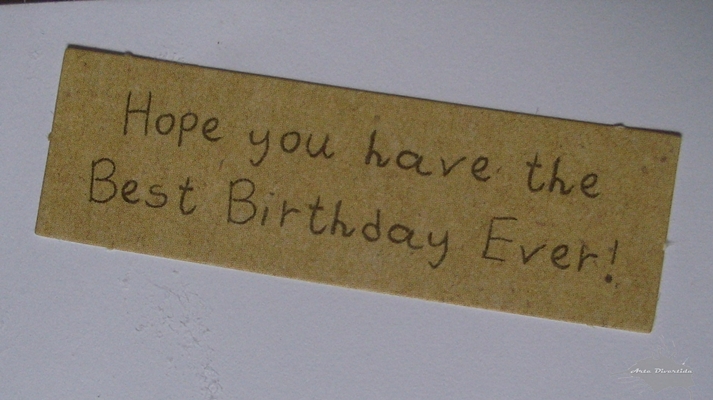 Hope you have the
Best Birthday Ever!
Arte Divertida